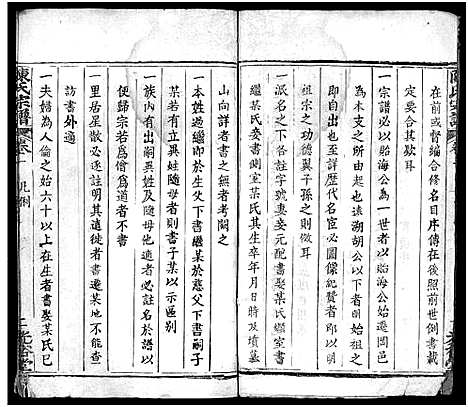 在前或督編合修名目序傳在後照前世倒書載
定要合其歟耳
一宗譜必以貽海公為一世者以貽海公始遷岡邑
為本支之所由出也遠溯胡公以下者明始祖
所自出也至詳歷代名宦必圖傑紀贊者即以明
祖宗之功德翼干孫之則傚耳
一派名之下各註字號妻妾元配書娶某氏繼室書
繼某氏妾書側室某氏其生卒年月日時及墳墓
山向詳者書之無者考闕之
一本姓過繼即於生父下書繼某於慈父下書嗣子
某若有立異姓隨母者則書子某以示區別
一有出嗣異姓及隨母他適者必註名於譜以
便歸宗若為僧為道者不書
一里居星散必註明其遠徙者書遷某地不以無從
訪書外適
一夫婦為人倫之始六十以上在生者書娶某氏已
陳氏宗譜
凡例